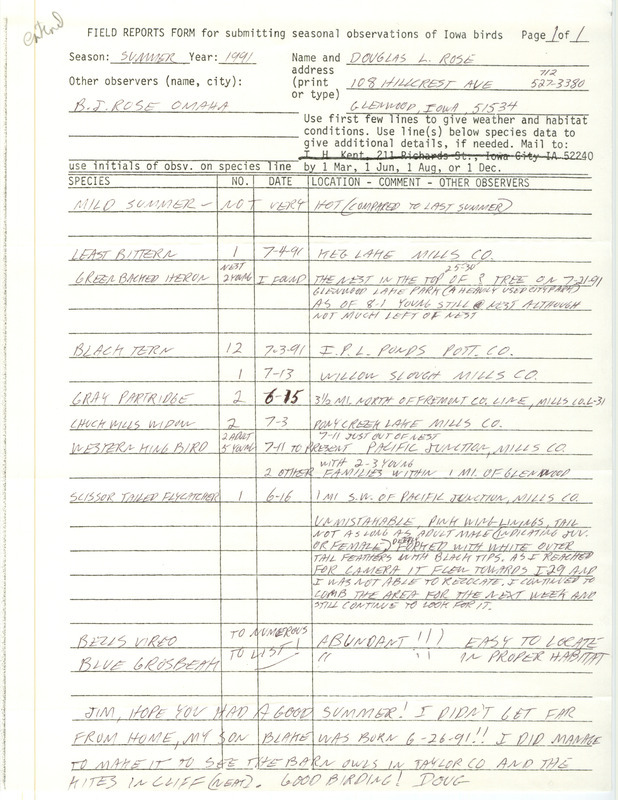 FIELD REPORTS FORM for submitting seasonal observations of Iowa birds Page 1 of 1
Season: SUMMER Year: 1991
Name and address (print or type) DOUGLAS L. ROSE
108 HILLCREST AVE 712 527-3380
GLENWOOD, IOWA, 51534
Other observers (name, city):
B.J. ROSE OMAHA
Use first few lines to give weather and habitat
conditions. Use line(s) below species data to
give additional details, if needed. Mail to:
T. H. Kent, 211 Richards St., Iowa City IA 52240
use initials of obsv. on species line by 1 Mar, 1 Jun, 1 Aug, or 1 Dec.
SPECIES NO. DATE LOCATION - COMMENT - OTHER OBSERVERS
MILD SUMMER - NOT VERY HOT (COMPARED TO LAST SUMMER)
LEAST BITTERN 1 7-4-91 KEG LAKE MILLS CO.
GREEN BACKED HERON NEST 2 YOUNG I FOUND THE NEST IN THE TOP OF 25-30 ? TREE ON 7-21-91
GLENWOOD LAKE PARK (A HEAVILY USED CITY PARK)
AS OF 8-1 YOUNG STILL @ NEST ALTHOUGH
NOT MUCH LEFT OF NEST
BLACK TERN 12 7-3-91 I.P.L. PONDS POTT. CO.
1 7-13 WILLOW SLOUGH MILLS CO.
GRAY PARTRIDGE 2 6-15 3½ MI. NORTH OF FREMONT CO. LINE, MILLS CO. L-31
CHUCK WILLS WIDOW 2 7-3 PONY CREEK LAKE MILLS CO.
7-11 JUST OUT OF NEST
WESTERN KING BIRD 2 ADULT 5 YOUNG 7-11 TO PRESENT PACIFIC JUNCTION, MILLS CO.
WITH 2-3 YOUNG
2 OTHER FAMILIES WITHIN 1 MI. OF GLENWOOD
SCISSOR TAILED FLYCATCHER 1 6-16 1 MI S.W. OF PACIFIC JUNCTION, MILLS CO.
UNMISTAKABLE, PINK WING LININGS, TAIL
NOT AS LONG AS ADULT MALE (INDICATING JUV.
OR FEMALE) DEEPLY FORKED WITH WHITE OUTER
TAIL FEATHERS WITH BLACK TIPS. AS I REACHED
FOR CAMERA IT FLEW TOWARDS I29 AND
I WAS NOT ABLE TO RELOCATE. I CONTINUED TO
COMB THE AREA FOR THE NEXT WEEK AND
STILL CONTINUE TO LOOK FOR IT.
BELLS VIREO TO NUMEROUS ABUNDANT !!! EASY TO LOCATE
BLUE GROSBEAK TO LIST! " " IN PROPER HABITAT
JIM, HOPE YOU HAD A GOOD SUMMER! I DIDN'T GET FAR
FROM HOME, MY SON BLAKE WAS BORN 6-26-91!! I DID MANAGE
TO MAKE IT TO SEE THE BARN OWLS IN TAYLOR CO AND THE
KITES IN CLIFF (NEAT). GOOD BIRDING! DOUG